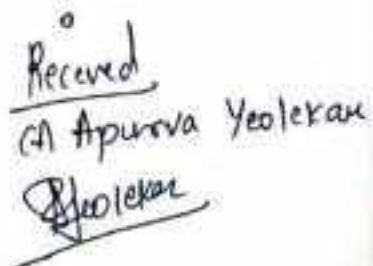 Receved
CA Apurva Yeolekar
Yeolekar